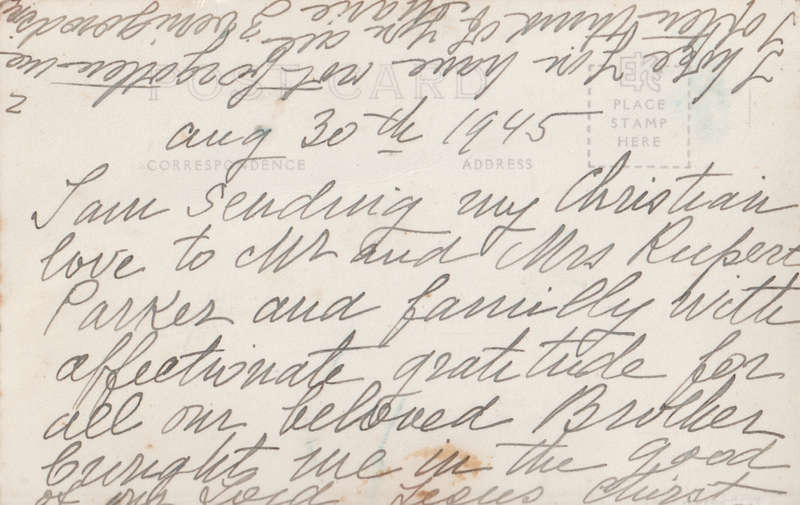 Aug 30th 1945
I am sending my Christian
love to Mr and Mrs Rupert
Parker and familly with
affectionate gratitude for
all our beloved Brother
brught me in the good
of our Lord Jesus Christ
I hope you have not forgotten me
I often think of you all
Marie
POST CARD
CORRESPONDENCE
ADDRESS
PLACE
STAMP
HERE